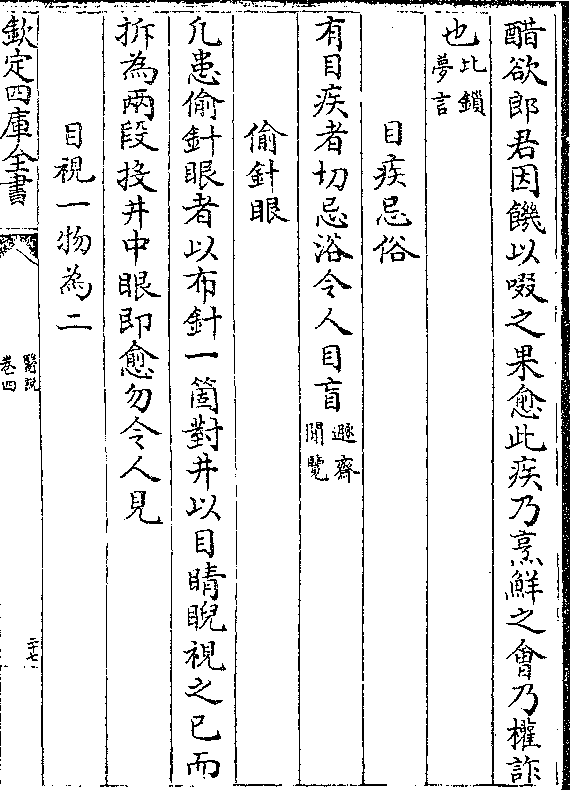 醋欲郎君因饑以啜之果愈此疾乃烹鮮之會乃權詐
也比鎖
夢言
目疾忌俗
有目疾者切忌浴令人目盲遯齋
閒覽
偷針眼
凡患偷針眼者以布針一箇對井以目睛睨視之已而
拆為兩段投井中眼即愈勿令人見
目視一物為二
欽定四庫全書
醫説
卷四
二十七